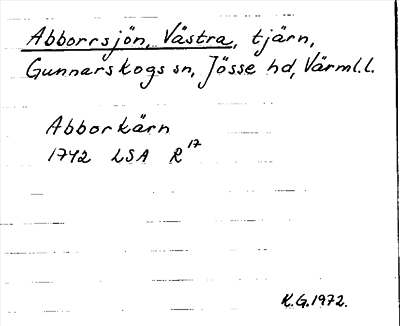 Abborrsjön, Västra, tjärn,
Gunnarskogs sn, Jösse hd, Värml.l.
Abborkärn
1742 LSA R 17
K.G.1972.